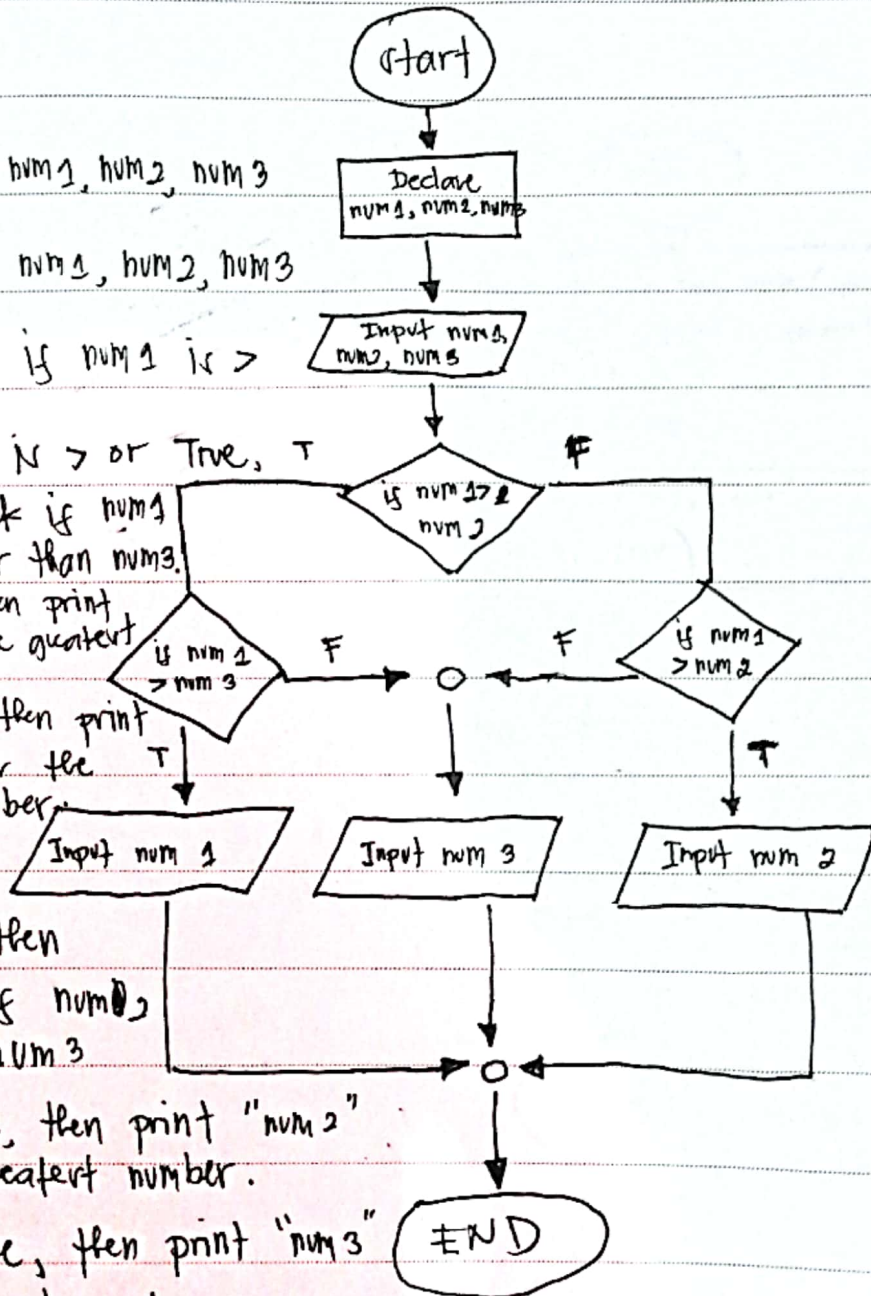 start
num1, num2, num3
Declare
num1, num2, num3
num1, num2, num3
Input num1,
num2, num3
if num1 is >
is > or True,
T
F
if num1>
num2
k if num1
r than num3.
en print
e greatest
if num1
> num3
F
F
if num1
> num2
then print
r the
ber.
T
T
Input num 1
Input num 3
Input num 2
then
f num
num3
, then print "num2"
eatest number.
e, then print "num3"
END